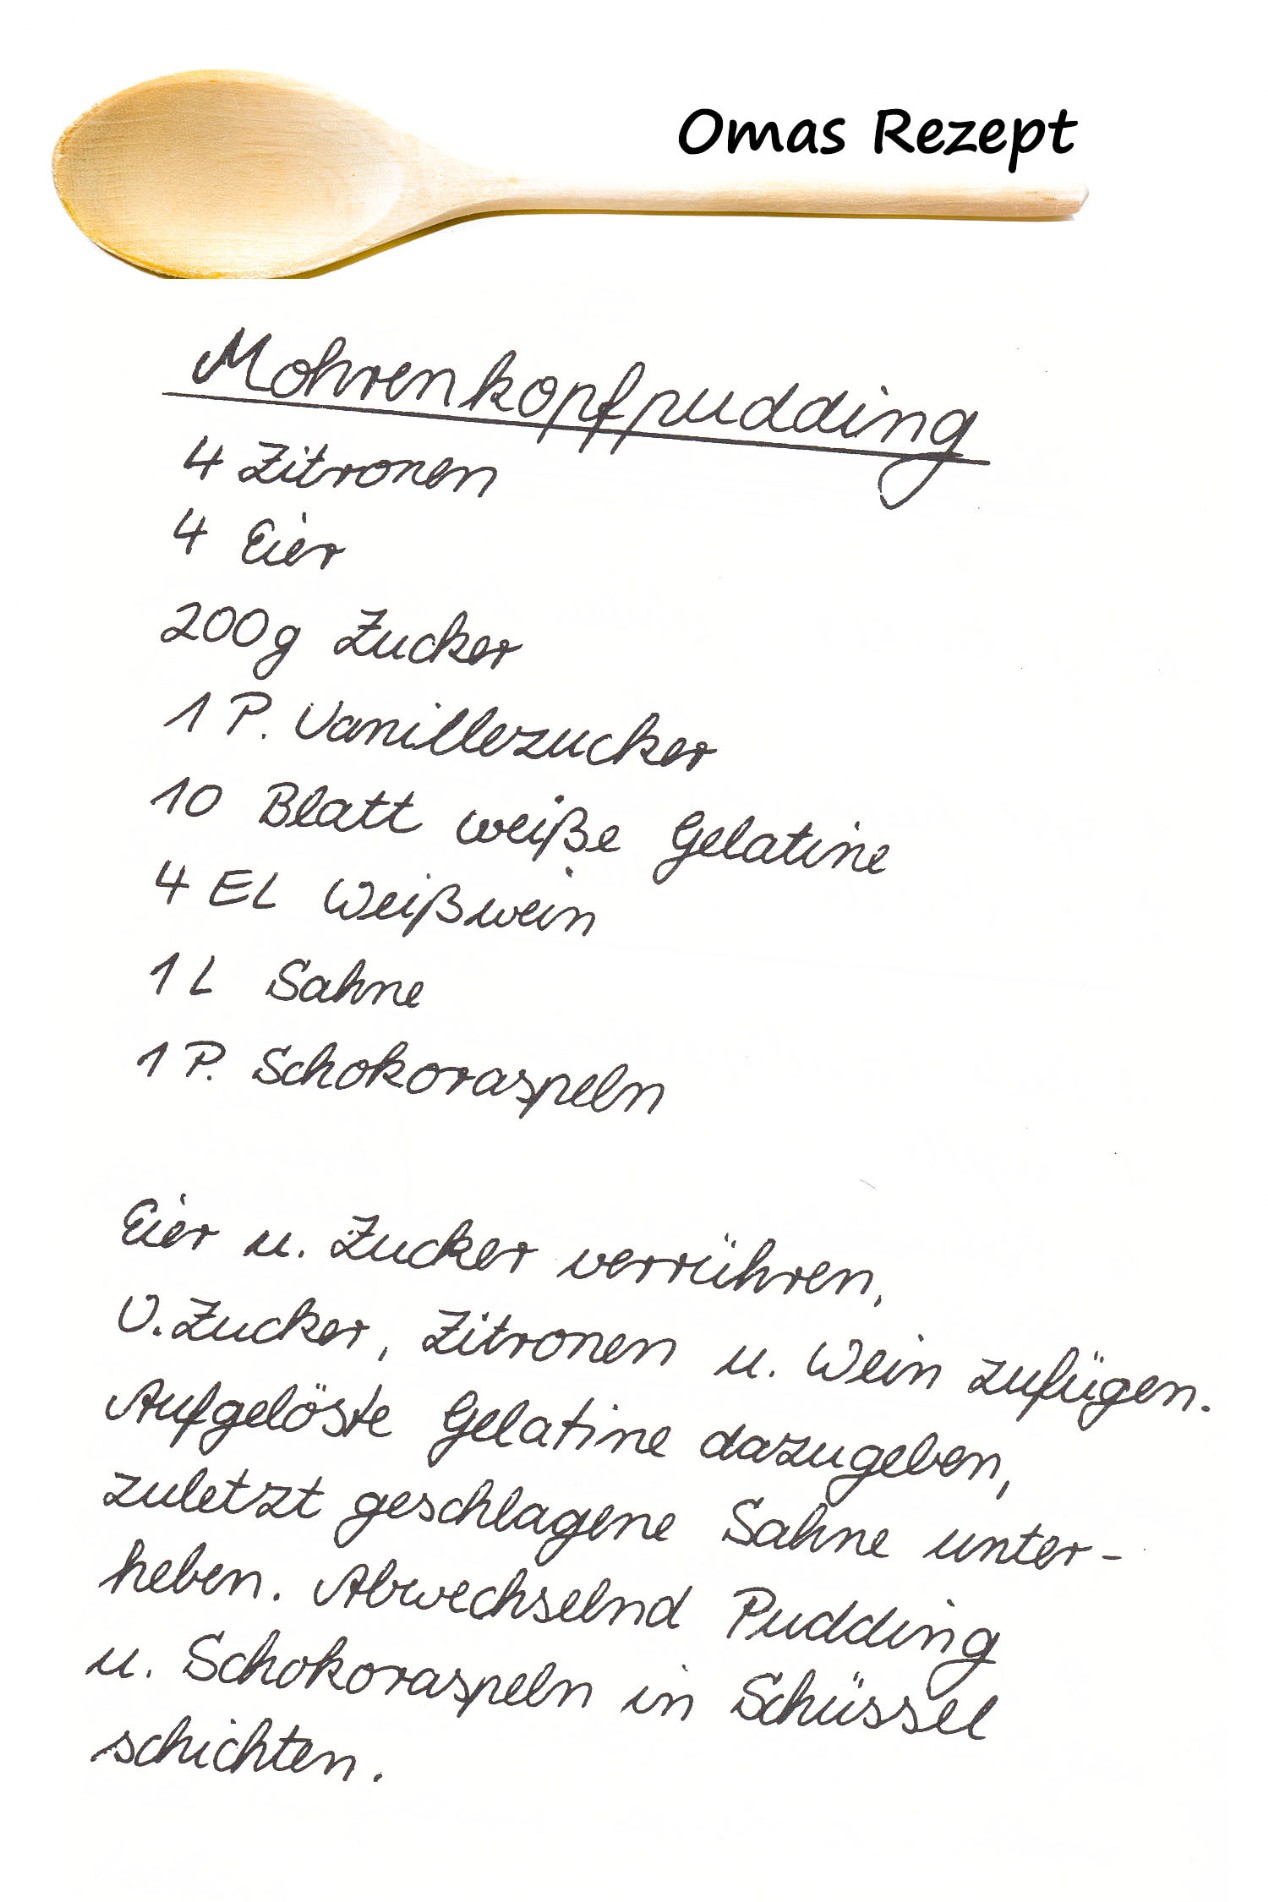 Omas Rezept
Mohrenkopfpudding
4 Zitronen
4 Eier
200g Zucker
1 P. Vanillezucker
10 Blatt weiße Gelatine
4 EL Weißwein
1 L Sahne
1 P. Schokoraspeln
Eier u. Zucker verrühren,
V.Zucker, Zitronen u. Wein zufügen.
Aufgelöste Gelatine dazugeben,
zuletzt geschlagene Sahne unter-
heben. Abwechselnd Pudding
u. Schokoraspeln in Schüssel
schichten.